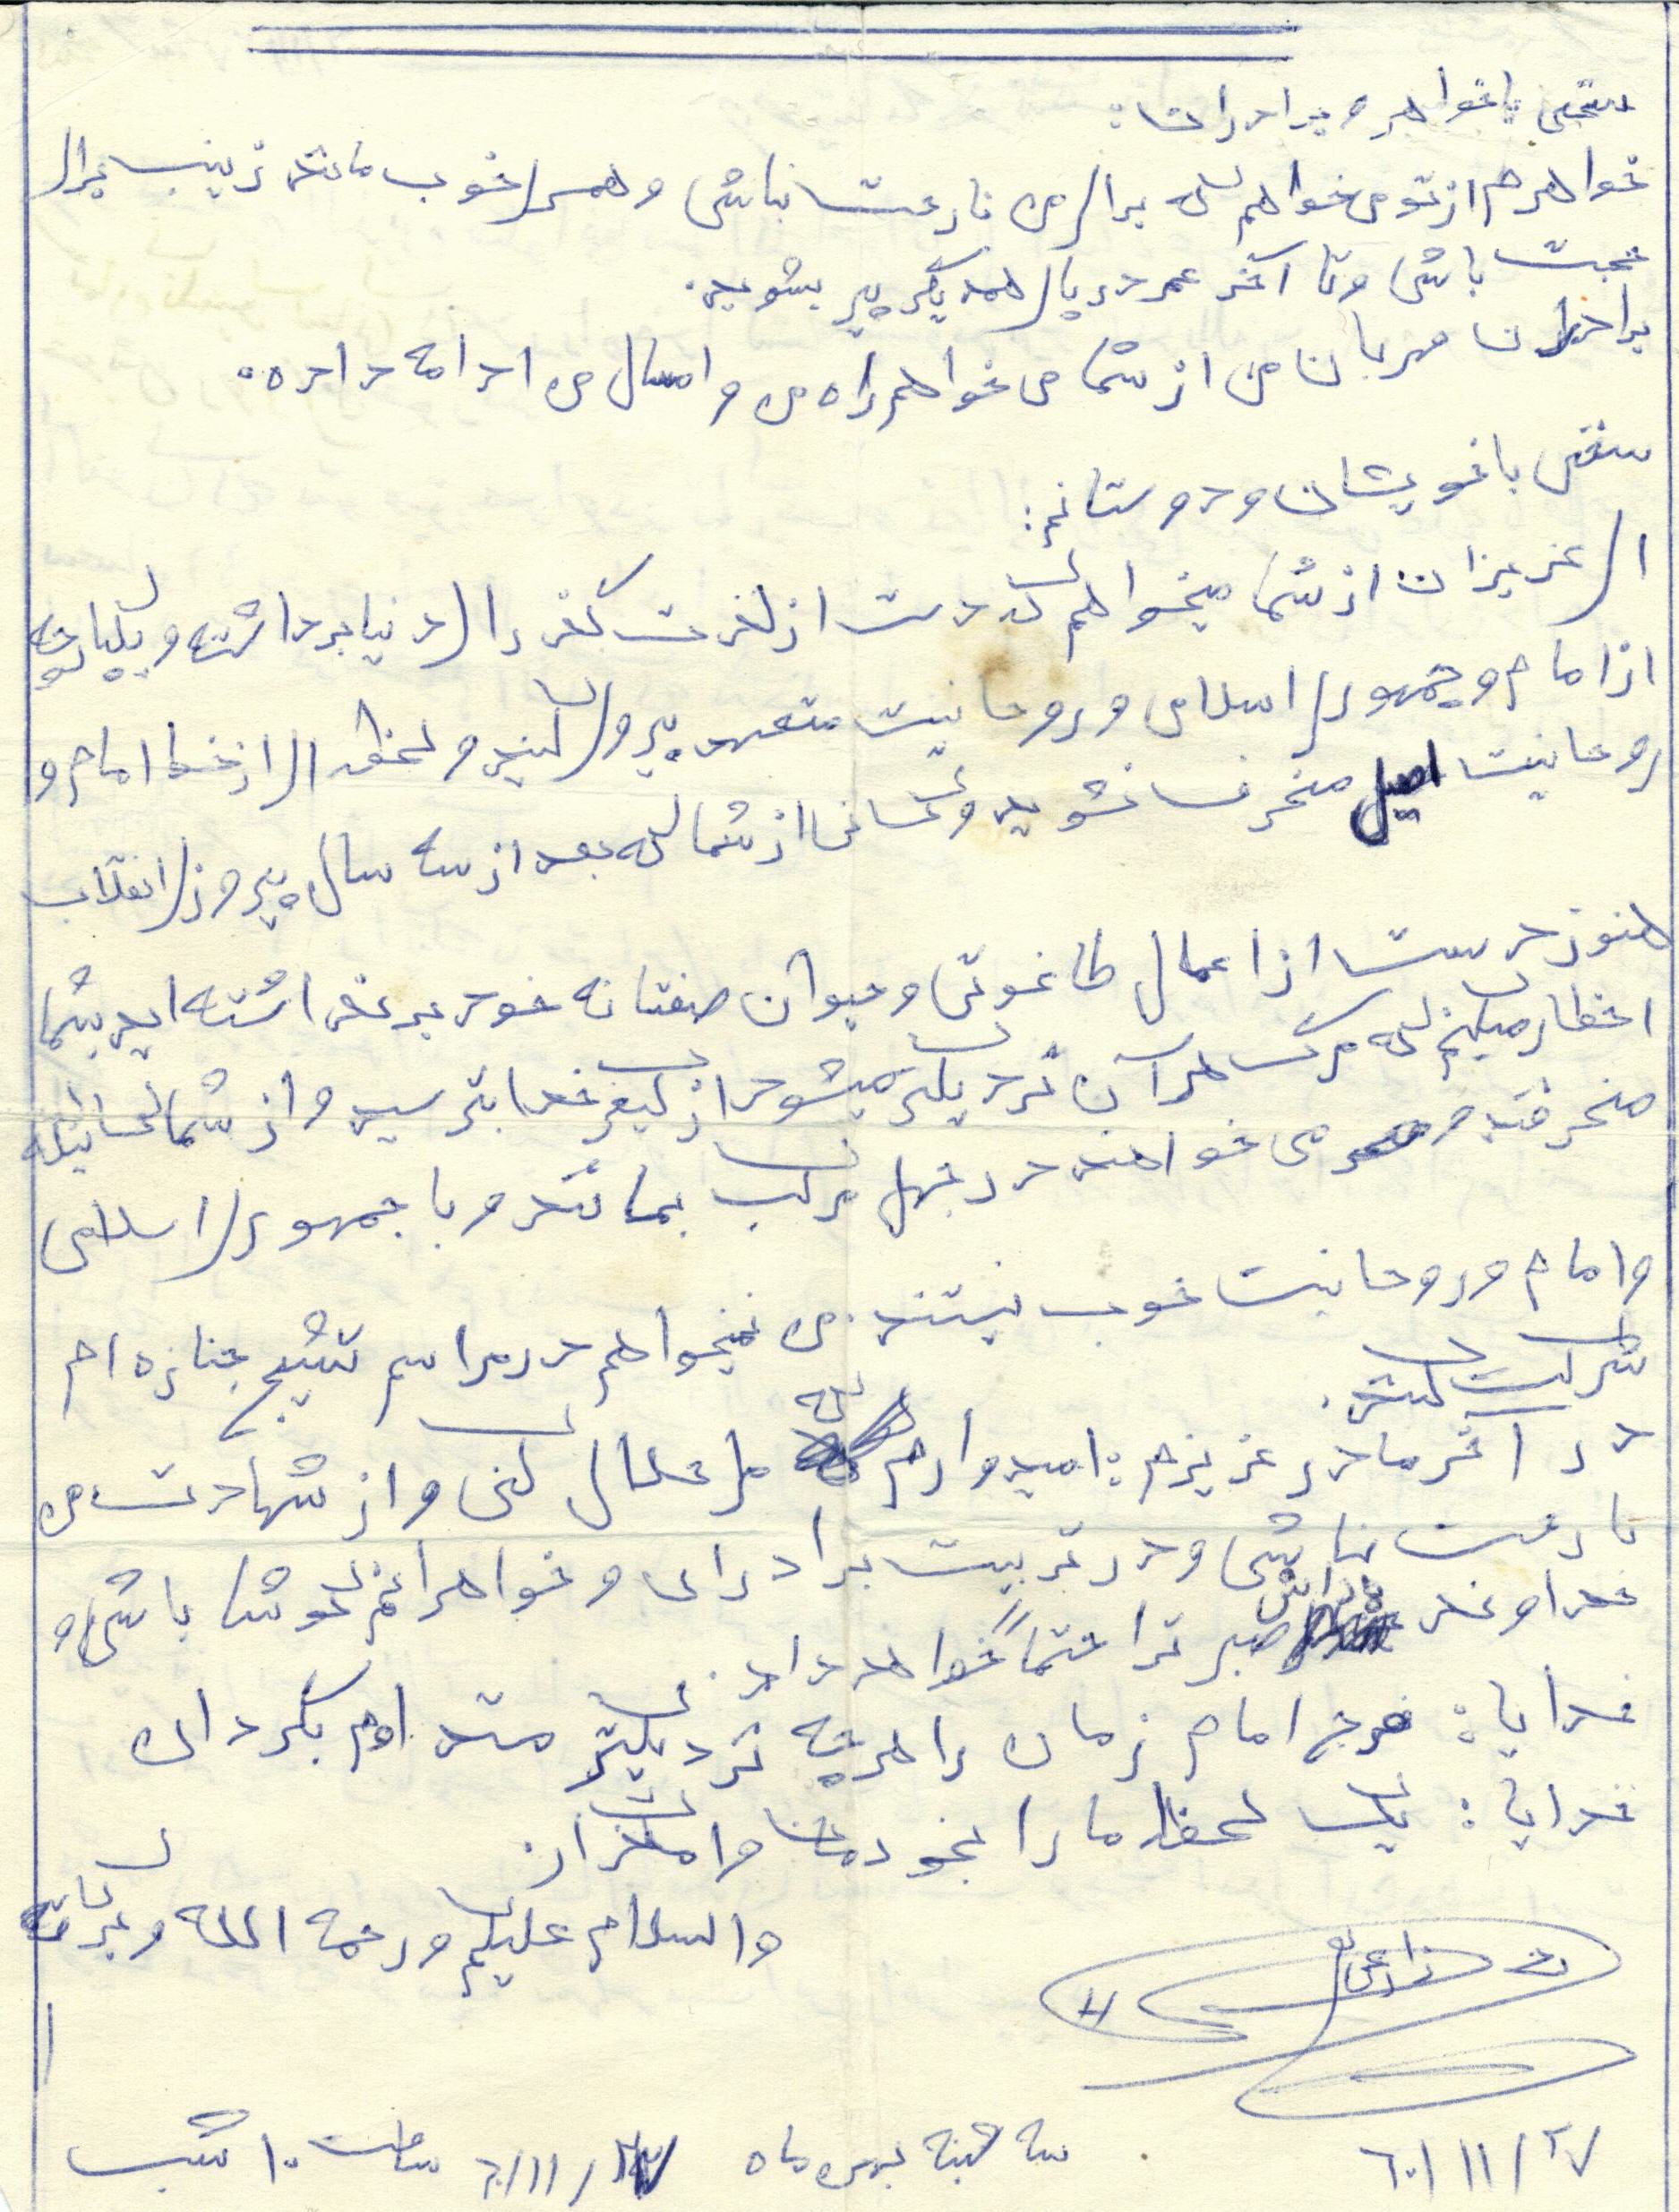 سخنی با خواهر و برادرانم:
خواهرم از تو می خواهم که برای من ناراحت نباشی و همسر خوب مانند زینب برای
حجت باشی و تا آخر عمر در پای همدیگر پیر بشوید.
برادران مهربان من از شما می خواهم راه من و امسال من ادامه داده.
سخنی با خویشان و دوستانم:
ای عزیزان از شما میخواهم که دست از لغزت گذرای دنیا برداشته و یکپارچه
از امام و جمهوری اسلامی و روحانیت متعهد پیروی کنید و لحظه ای از خط امام و
روحانیت اصیل منحرف نشوید و کسانی از شما که بعد از سه سال پیروزی انقلاب
هنوز دست از اعمال طاغوتی و حیوان صفتانه خود بر نداشته اید بشما
اخطار میکنم که مرگ هر آن نزدیکتر میشود از کیفر خدا بترسید و از شما کسانیکه
منحرفند و می خواهند در جهل مرکب بمانند و با جمهوری اسلامی
و امام و روحانیت خوب نیستند. من نمیخواهم در مراسم تشیع جنازه ام
شرکت کنند.
در آخر مادر عزیزم: امیدوارم که مرا حلال کنی و از شهادت من
ناراحت نباشی و در تربیت برادران و خواهرانم کوشا باشی و
خداوند پاداش صبر ترا حتماً خواهد داد.
خدایا: فرج امام زمان را هر چه نزدیکتر بگردان
خدایا: یک لحظه ما را بخودمان وامگذران.
والسلام علیکم و رحمه الله و برکاته
۶۰/۱۱/۲۷
سه شنبه بهمن ماه ۶۰/۱۱/۲۷ ساعت ۱۰ شب